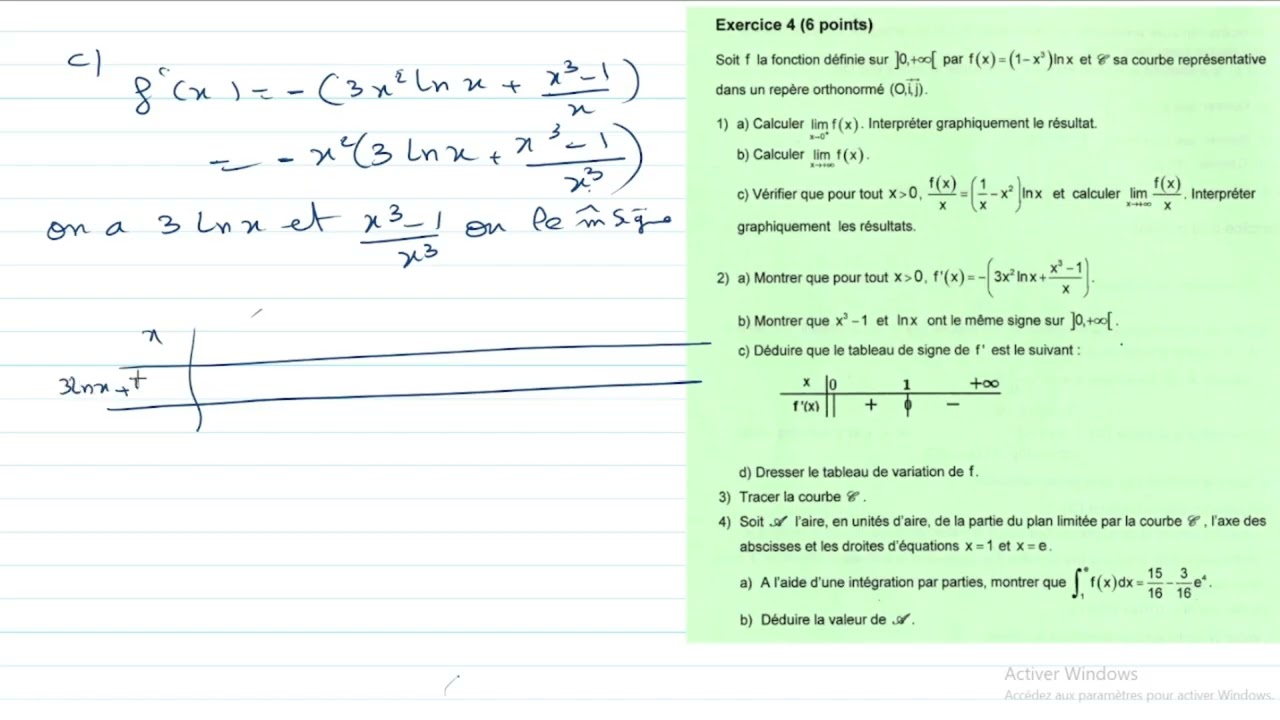 c)
f'(x) = - (3x² ln x + \frac{x³-1}{x})
= - x² (3 ln x + \frac{x³-1}{x³})
on a 3 ln x et \frac{x³-1}{x³} on le m̂ signe
x
3lnx + +
Exercice 4 (6 points)
Soit f la fonction définie sur ]0,+∞[ par f(x) = (1-x³)lnx et 𝒞 sa courbe représentative
dans un repère orthonormé (O,i⃗,j⃗).
1) a) Calculer lim_{x→0⁺} f(x). Interpréter graphiquement le résultat.
b) Calculer lim_{x→+∞} f(x).
c) Vérifier que pour tout x>0, \frac{f(x)}{x} = (\frac{1}{x} - x²) lnx et calculer lim_{x→+∞} \frac{f(x)}{x}. Interpréter
graphiquement les résultats.
2) a) Montrer que pour tout x>0, f'(x) = -(3x² lnx + \frac{x³-1}{x}).
b) Montrer que x³-1 et lnx ont le même signe sur ]0,+∞[.
c) Déduire que le tableau de signe de f' est le suivant :
x 0 1 +∞
f'(x) || + 0 −
d) Dresser le tableau de variation de f.
3) Tracer la courbe 𝒞.
4) Soit 𝒜 l'aire, en unités d'aire, de la partie du plan limitée par la courbe 𝒞, l'axe des
abscisses et les droites d'équations x=1 et x=e.
a) A l'aide d'une intégration par parties, montrer que ∫₁ᵉ f(x)dx = \frac{15}{16} - \frac{3}{16}e⁴.
b) Déduire la valeur de 𝒜.
Activer Windows
Accédez aux paramètres pour activer Windows.